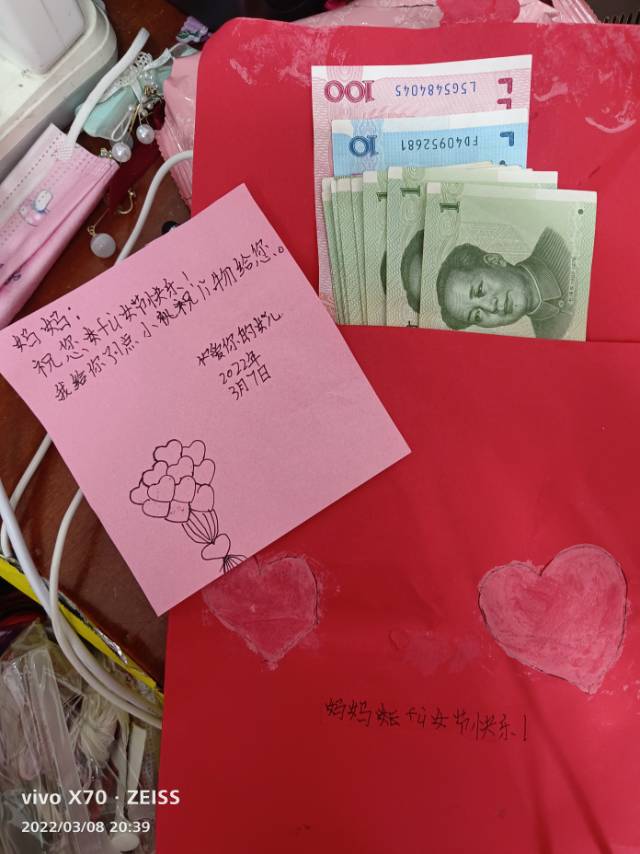 妈妈:
祝您妇fù女节快乐!
我给你了点小礼礼物给您。
爱你的女儿
2022年
3月7日
100
L5G5484045
10
FD40952681
1
1
1
妈妈 fù女节快乐!
vivo X70 · ZEISS
2022/03/08 20:39